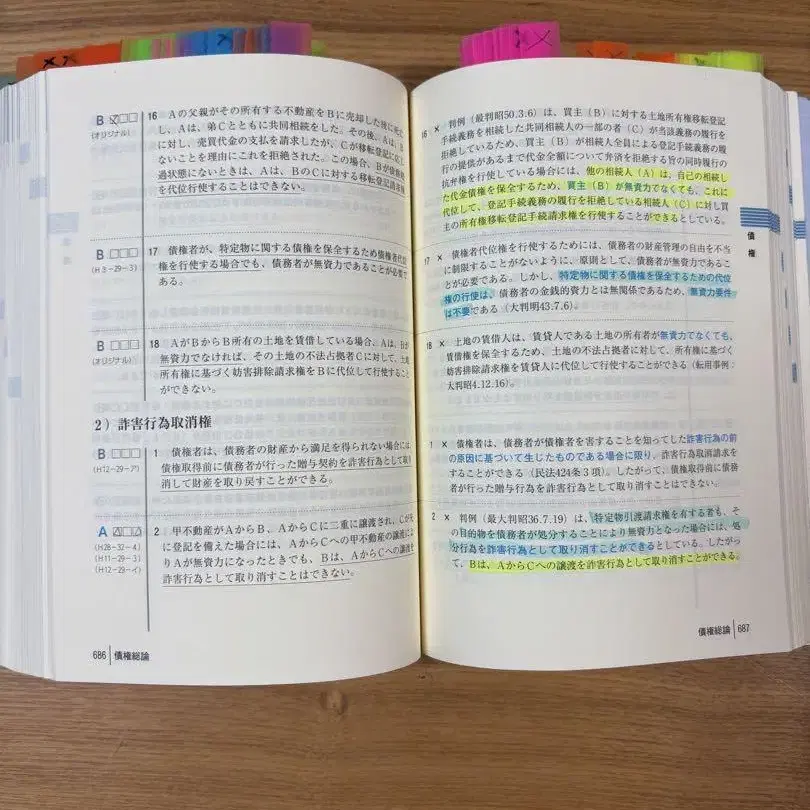 B
(オリジナル)
16 Aの父親がその所有する不動産をBに売却した後に死亡
し、Aは、弟Cとともに共同相続をした。その後、Aは、B
に対し、売買代金の支払を請求したが、Cが移転登記に応じ
ないことを理由にこれを拒絶された。この場合、Bが債務超
過状態にないときは、Aは、BのCに対する移転登記請求権
を代位行使することはできない。
B □□□
(H8-29-3)
17 債権者が、特定物に関する債権を保全するため債権者代位
権を行使する場合でも、債務者が無資力であることが必要で
ある。
B □□□
(オリジナル)
18 AがBからB所有の土地を賃借している場合、Aは、Bが
無資力でなければ、その土地の不法占拠者Cに対して、土地
所有権に基づく妨害排除請求権をBに代位して行使すること
ができない。
2)詐害行為取消権
B □□□
(H12-29-ア)
1 債権者は、債務者の財産から満足を得られない場合には、
債権取得前に債務者が行った贈与契約を詐害行為として取り
消して財産を取り戻すことができる。
A
(H28-32-4)
(H11-29-3)
(H12-29-イ)
2 甲不動産がAからB、AからCに二重に譲渡され、Cが先
に登記を備えた場合には、AからCへの甲不動産の譲渡によ
りAが無資力になったときでも、Bは、AからCへの譲渡を
詐害行為として取り消すことはできない。
686 債権総論
16 × 判例(最判昭50.3.6)は、買主(B)に対する土地所有権移転登記
手続義務を相続した共同相続人の一部の者(C)が当該義務の履行を
拒絶しているため、買主(B)が相続人全員による登記手続義務の履行
の提供があるまで代金全額について弁済を拒絶する旨の同時履行の
抗弁権を行使している場合には、他の相続人(A)は、自己の相続し
た代金債権を保全するため、買主(B)が無資力でなくても、これに
代位して、登記手続義務の履行を拒絶している相続人(C)に対し買
主の所有権移転登記手続請求権を行使することができるとしている。
17 × 債権者代位権を行使するためには、債務者の財産管理の自由を不当
に制限することがないように、原則として、債務者が無資力であるこ
とが必要である。しかし、特定物に関する債権を保全するための代位
権の行使は、債務者の金銭的資力とは無関係であるため、無資力要件
は不要である(大判明43.7.6)。
18 × 土地の賃借人は、賃貸人である土地の所有者が無資力でなくても、
賃借権を保全するため、土地の不法占拠者に対して、所有権に基づく
妨害排除請求権を賃貸人に代位して行使することができる(転用事例:
大判昭4.12.16)。
1 × 債権者は、債務者が債権者を害することを知ってした詐害行為の前
の原因に基づいて生じたものである場合に限り、詐害行為取消請求を
することができる(民法424条3項)。したがって、債権取得前に債務
者が行った贈与行為を詐害行為として取り消すことはできない。
2 × 判例(最大判昭36.7.19)は、特定物引渡請求権を有する者も、そ
の目的物を債務者が処分することにより無資力となった場合には、処
分行為を詐害行為として取り消すことができるとしている。したがっ
て、Bは、AからCへの譲渡を詐害行為として取り消すことができる。
債権
債権総論 687